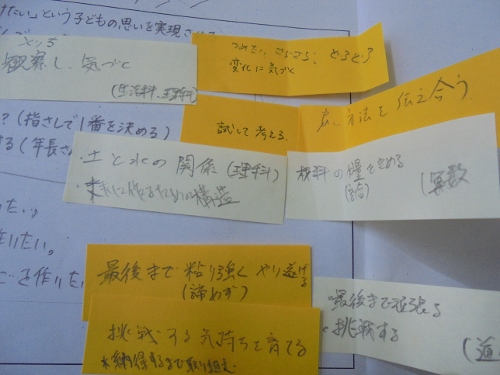 たい」という子どもの思いを実現させ
観察し、気づく
(生活科、理科)
つめたい、さらさら、どろどろ
変化に気づく
?(指さしで1番を決める)
する(年長さ
試して考える
方法を伝え合う
・土と水の関係(理科)
構造
材料の量をきめる
(算数
たい。
作りたい。
ごを作りた
最後まで粘り強くやり遂げる
(諦めず)
挑戦する気持ちを育てる
*納得するまで取り組む
最後まで頑張る
挑戦する
(道